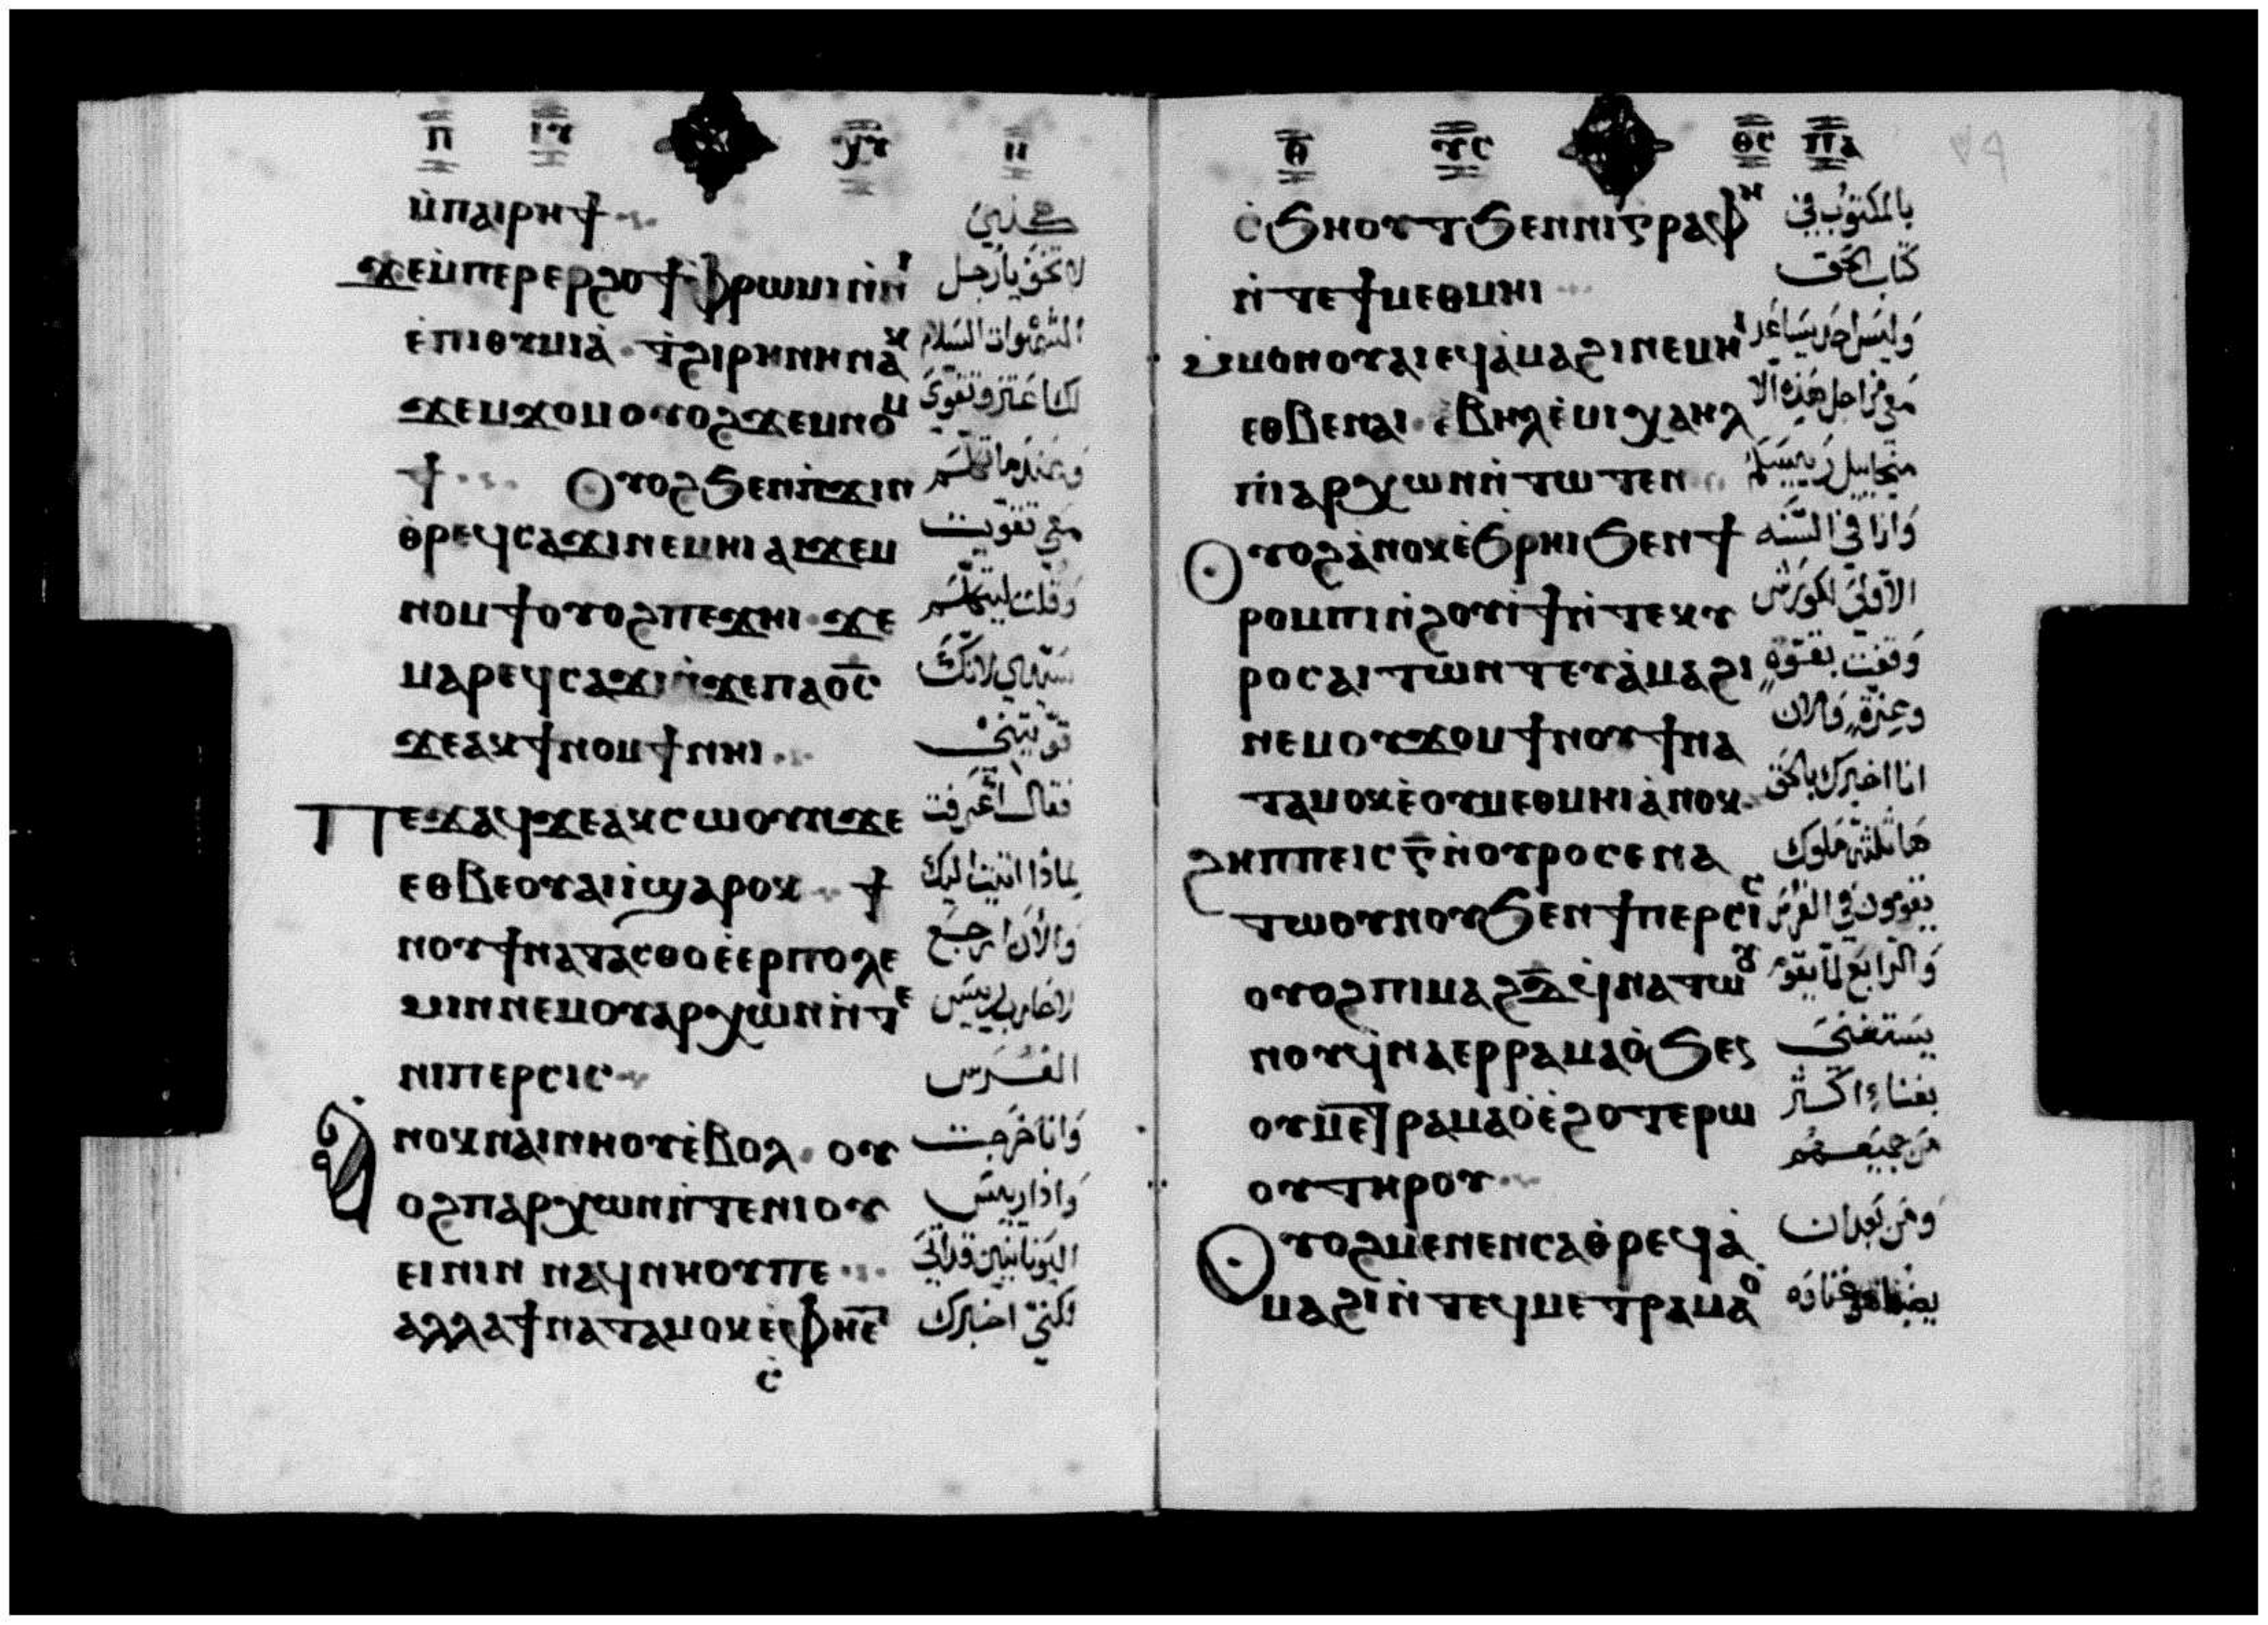 ⲡ ⲓⲩ ⲭⲩ ⲏ
ⲙ̀ⲡⲁⲓⲣⲏϯ
ϫⲉⲙ̀ⲡⲉⲣⲉⲣϩⲟϯ ⲫⲣⲱⲙⲓ ⲛ̀ⲛⲓ
لا تخف يا رجل
ⲉ̀ⲡⲓⲑⲩⲙⲓⲁ̀ · ⲧ̀ϩⲓⲣⲏⲛⲏ ⲛⲁⲕ
الشهوات السلام
ϫⲉⲙϫⲟⲙ ⲟⲩⲟϩ ϫⲉⲙⲛⲟⲙ
لك اعتز وتقوى
ϯ Ⲟⲩⲟϩ ϧⲉⲛⲡ̀ϫⲓⲛ
وعندما تكلم
ⲑ̀ⲣⲉϥⲥⲁϫⲓ ⲛⲉⲙⲏⲓ ⲁⲓϫⲉⲙ
معي تقويت
ⲛⲟⲙϯ ⲟⲩⲟϩ ⲡⲉϫⲏⲓ · ϫⲉ
وقلت ليتكلم
ⲙⲁⲣⲉϥⲥⲁϫⲓ ⲛ̀ϫⲉⲡⲁⲟ̅ⲥ̅
سيدي لانك
ϫⲉⲁⲕϯⲛⲟⲙϯ ⲛⲏⲓ
قويتني
Ⲡⲉϫⲁϥ ϫⲉⲁⲕⲥⲱⲟⲩⲛ ϫⲉ
فقال اعرفت
ⲉⲑⲃⲉⲟⲩ ⲁⲓⲓ̀ ϣⲁⲣⲟⲕ ϯ
لماذا اتيت اليك
ⲛⲟⲩ ϯⲛⲁⲧⲁⲥⲑⲟ ⲉ̀ⲉⲣⲡⲟⲗⲉ
والان ارجع
ⲙⲓⲛ ⲛⲉⲙⲟⲩⲁⲣⲭⲱⲛ ⲛ̀ⲧⲉ
لاحارب ريس
ⲛⲓⲡⲉⲣⲥⲓⲥ
الفرس
Ⲁⲛⲟⲕ ⲛⲁⲓⲛⲏⲟⲩ ⲉ̀ⲃⲟⲗ · ⲟⲩ
وانا خرجت
ⲟϩ ⲡⲁⲣⲭⲱⲛ ⲛ̀ⲧⲉⲛⲓⲟⲩ
واذا ريس
ⲉⲓⲛⲓⲛ ⲛⲁϥⲛⲏⲟⲩ ⲡⲉ
اليونانيين قد اتى
ⲁⲗⲗⲁ ϯⲛⲁⲧⲁⲙⲟⲕ ⲉ̀ⲫⲏⲉⲧ
لكني اخبرك
ⲥ̀
ⲑ ⲩⲥ ⲑⲥ ⲡⲁ
ⲥ̀ϧⲏⲟⲩⲧ ϧⲉⲛⲛⲓⲅⲣⲁⲫⲏ
بالمكتوب في
ⲛ̀ⲧⲉϯⲙⲉⲑⲙⲏⲓ
كتاب الحق
ⲙ̀ⲙⲟⲛ ⲟⲩⲁⲓ ⲉϥⲁ̀ⲙⲁϩⲓ ⲛⲉⲙⲏⲓ
وليس احد يساعد
ⲉⲑⲃⲉⲛⲁⲓ · ⲉ̀ⲃⲏⲗ ⲉ̀ⲙⲓⲭⲁⲏⲗ
معي من اجل هذه الا
ⲡⲓⲁⲣⲭⲱⲛ ⲛ̀ⲧⲱⲧⲉⲛ
ميخاييل رييسكم
Ⲟⲩⲟϩ ⲁ̀ⲛⲟⲕ ⲉ̀ϧⲣⲏⲓ ϧⲉⲛϯ
وانا في السنه
ⲣⲟⲙⲡⲓ ⲛ̀ϩⲟⲩⲓ̀ϯ ⲛ̀ⲧⲉⲕⲩ
الاولى لكورش
ⲣⲟⲥ ⲁⲓⲧⲱⲛⲧ ⲉⲩⲁ̀ⲙⲁϩⲓ
وقفت بقوة
ⲛⲉⲙⲟⲩϫⲟⲙ ϯⲛⲟⲩ ϯⲛⲁ
وعزة والان
ⲧⲁⲙⲟⲕ ⲉ̀ⲟⲩⲙⲉⲑⲙⲏⲓ ⲁ̀ⲛⲟⲕ
انا اخبرك بالحق
ϩⲏⲡⲡⲉ ⲓⲥ ⲅ̅ ⲛ̀ⲟⲩⲣⲟ ⲥⲉⲛⲁ
ها ثلثة ملوك
ⲧⲱⲟⲩⲛⲟⲩ ϧⲉⲛϯⲡⲉⲣⲥⲓⲥ
يقومون في الفرس
ⲟⲩⲟϩ ⲡⲓⲙⲁϩⲇ̅ ⲉϥⲛⲁⲧⲱⲟⲩ
والرابع لما يقوم
ⲛⲟⲩ ϥⲛⲁⲉⲣⲣⲁⲙⲁⲟ̀ ϧⲉⲛ
يستغني
ⲟⲩⲙⲉⲧⲣⲁⲙⲁⲟ̀ ⲉ̀ϩⲟⲧⲉⲣⲱ
بغناء اكثر
ⲟⲩ ⲧⲏⲣⲟⲩ
من جميعهم
Ⲟⲩⲟϩ ⲙⲉⲛⲉⲛⲥⲁⲑ̀ⲣⲉϥⲁ̀
ومن بعد ان
ⲙⲁϩⲓ ⲛ̀ⲧⲉϥⲙⲉⲧⲣⲁⲙⲁⲟ̀
غناوه